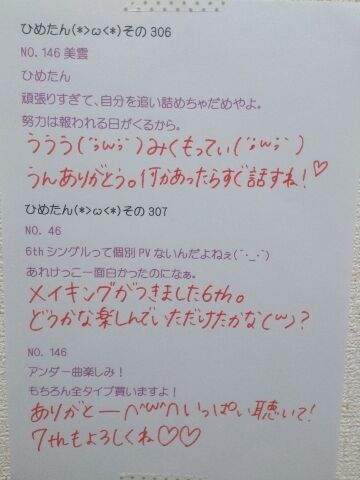 ひめたん(*>ω<*)その306
NO. 146 美雲
ひめたん
頑張りすぎて、自分を追い詰めちゃだめやよ。
努力は報われる日がくるから。
ううう(´;ω;`)みくもってぃ(´;ω;`)
うんありがとう。何かあったらすぐ話すね!♡
ひめたん(*>ω<*)その307
NO. 46
6thシングルって個別PVないんだよねぇ(´・_・`)
あれけっこー面白かったのになぁ。
メイキングがつきました6th。
どうかな楽しんでいただけたかな(ω)?
NO. 146
アンダー曲楽しみ!
もちろん全タイプ買いますよ!
ありがとー∩^ω^∩いっぱい聴いて!
7thもよろしくね♡♡